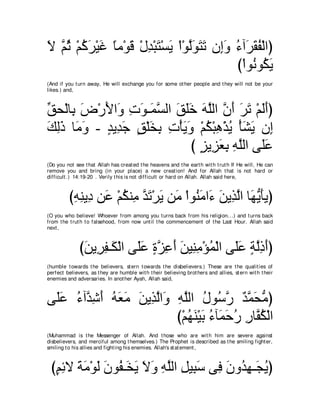 (الْفُقَرَآءُ وَإِن تَتَوَلَّوْاْ يَسْتَبْدِلْ قَوْماً غَيْرَكُمْ ثُمَّ لاَ
يَكُونُواْ)
(And if you turn away, He will exchange you for some other people and they will not be your
likes.) and,
(أَلَمْ تَرَ أَنَّ اللَّهَ خَلَقَ السَّمَـوَتِ وَالأَرْضَ بِالْحقِّ
إِن يَشَأْ يُذْهِبْكُمْ وَيَأْتِ بِخَلْقٍ جَدِيدٍ - وَمَا ذلِكَ
عَلَى اللَّهِ بِعَزِيزٍ )
(Do you not see that Allah has created the heavens and the earth with truth If He will, He can
remove you and bring (in your place) a new creation! And for Allah that is not hard or
difficult.) 14:19-20 . Verily this is not difficult or hard on Allah. Allah said here,
(يَـأَيُّهَا الَّذِينَ ءَامَنُواْ مَن يَرْتَدَّ مِنكُمْ عَن دِينِهِ)
(O you who believe! Whoever from among you turns back from his religion...) and turns back
from the truth to falsehood, from now until the commencement of the Last Hour. Allah said
next,
(أَذِلَّةٍ عَلَى الْمُؤْمِنِينَ أَعِزَّةٍ عَلَى الْكَـفِرِينَ)
(humble towards the believers, stern towards the disbelievers.) These are the qualities of
perfect believers, as they are humble with their believing brothers and allies, stern with their
enemies and adversaries. In another Ayah, Allah said,
(مُّحَمَّدٌ رَّسُولُ اللَّهِ وَالَّذِينَ مَعَهُ أَشِدَّآءُ عَلَى
الْكُفَّارِ رُحَمَآءُ بَيْنَهُمْ)
(Muhammad is the Messenger of Allah. And those who are with him are severe against
disbelievers, and merciful among themselves.) The Prophet is described as the smiling fighter,
smiling to his allies and fighting his enemies. Allah's statement,
(يُجَـهِدُونَ فِى سَبِيلِ اللَّهِ وَلاَ يَخَـفُونَ لَوْمَةَ لائِمٍ)